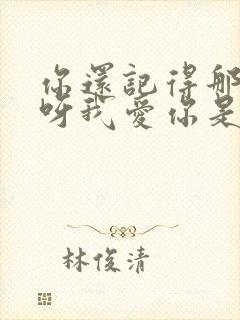 你還記得那
呀我愛你是
林俊清